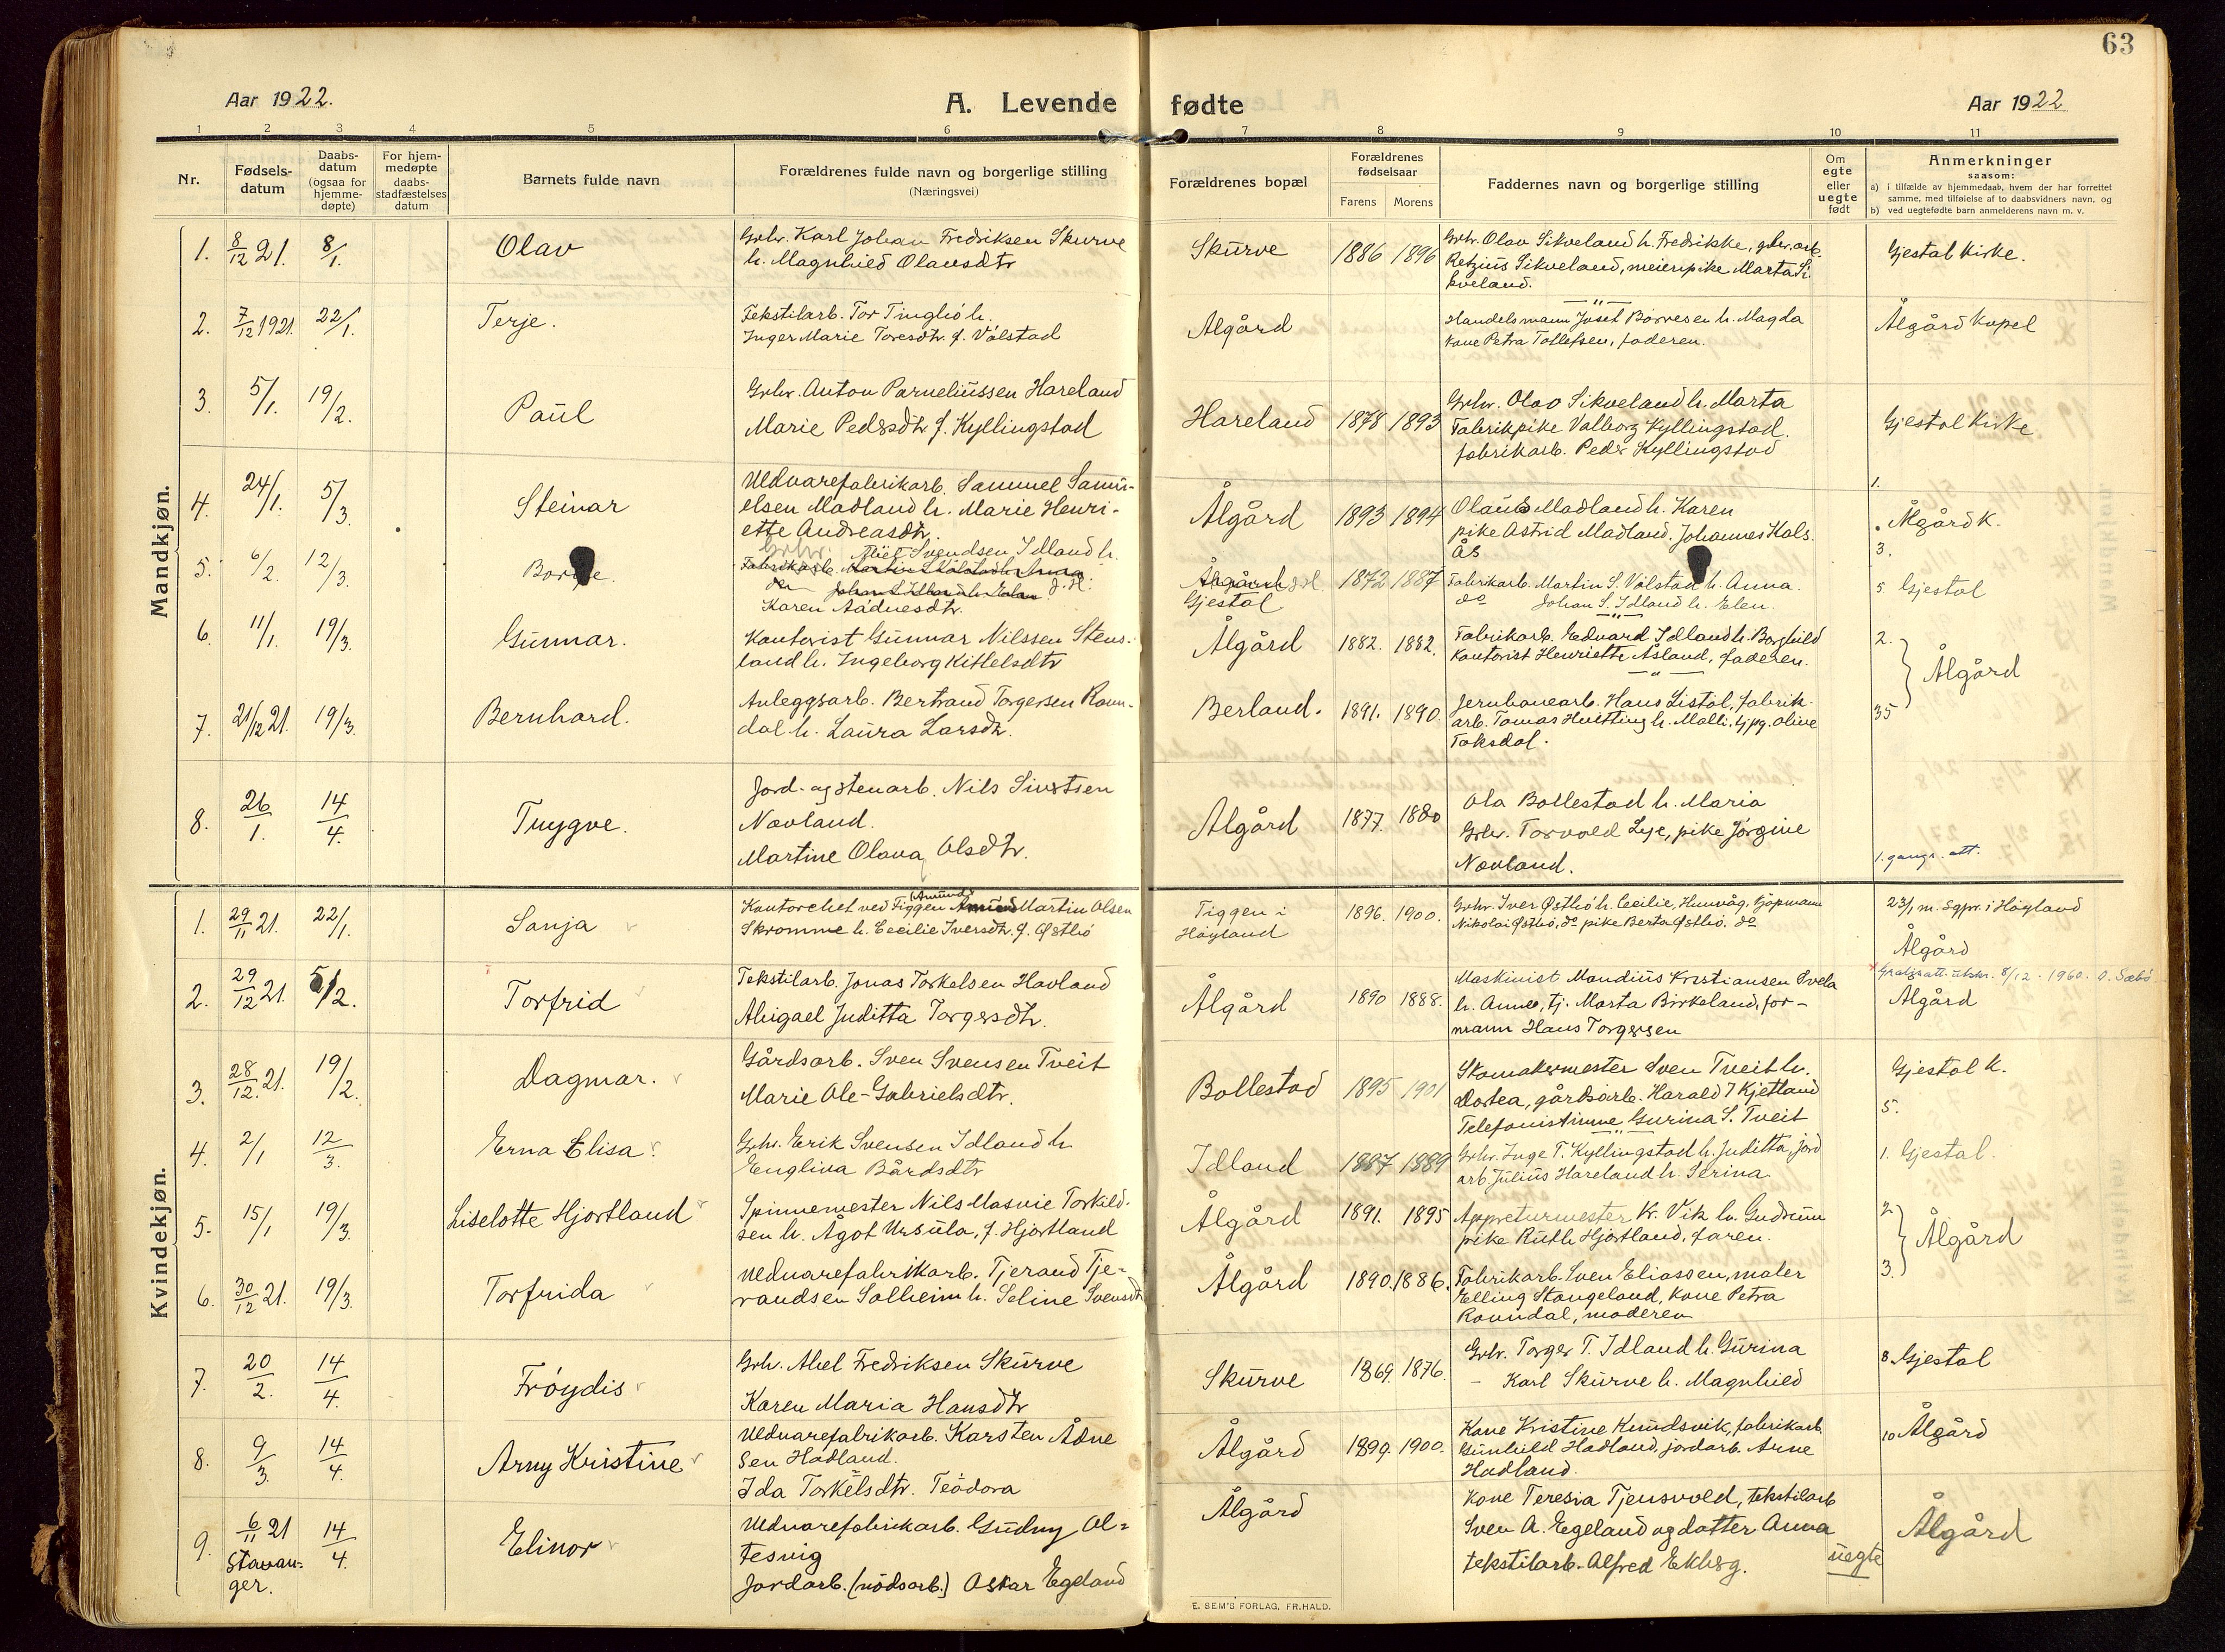 63
Aar 1922.
A. Levende fødte
Aar 1922
1 2 3 4 5 6 7 8 9 10 11
Nr.
Fødsels-
datum
Daabs-
datum
(ogsaa for
hjemme-
døpte)
For hjem-
medøpte
daabs-
stadfæstelses
datum
Barnets fulde navn
Forældrenes fulde navn og borgerlige stilling
(Næringsvei)
Forældrenes bopæl
Forældrenes
fødselsaar
Farens Morens
Faddernes navn og borgerlige stilling
Om
egte
eller
uegte
født
Anmerkninger
saasom:
a) i tilfælde av hjemmedaab, hvem der har forrettet
samme, med tilføielse af to daabsvidners navn, og
b) ved uegtefødte barn anmelderens navn m. v.
Mandkjøn.
1. 8/12 21. 8/1. Olav
Grbr. Karl Johan Fredriksen Skurve
h. Magnhied Olausdtr
Skurve 1886 1896
Grbr. Olav Sikveland h. Fredrikke, grbr. arb.
Retzius Sikveland, meieripike Marta Si-
kveland.
Gjestal Kirke.
2. 7/12 1921. 22/1. Terje.
Tekstilarb. Tor Tinghö h.
Inger Marie Toresdtr. f. Válstad
Ålgård
Handelsmann Josef Börresen h. Magda
Kone Petra Tollefsen, faderen.
Ålgård Kapel
3. 5/1. 19/2. Paul
Grbr. Anton Parneliussen Hareland
Marie Pedersdtr f. Kyllingstad
Hareland 1878 1893
Grbr. Olav Sikveland h. Marta
Fabrikpike Valborg Kyllingstad.
fabrikarb. Peder Kyllingstad
Gjestal Kirke
4. 24/1. 5/3. Steinar
Uldvarefabrikarb. Samuel Samu-
elsen Madland h. Marie Henri-
ette Andreasdtr.
Ålgård 1893 1894
Olaus Madland h. Karen
pike Astrid Madland. Johannes Kals
ås
1.
Ålgård K.
3.
5. 6/2. 12/3.
Grbr. Svendsen Idland h.
Fabrikarb.
Karen Aadnesdtr.
Gjestal 1872 1887
Fabrikarb. Martin S. Válstad h. Anna.
do Johan S. Idland h. Elen.
5 Gjestal
6. 11/1. 19/3. Gunnar.
Kontorist Gunnar Nilssen Stens-
land h. Ingeborg Kittelsdtr
Ålgård 1882. 1882.
Fabrikarb. Edvard Idland h. Borghild
Kontorist Henriette Åsland, faderen.
2.
Ålgård
7. 21/12 21. 19/3. Bernhard.
Anleggsarb. Bertrand Torgersen Raun-
dal h. Laura Larsdtr.
Berland. 1891. 1890.
Jernbanearb. Hans Listöl, fabrik-
arb. Tomas Hvitting h. Malli. tjpg. Olive
Taksdal.
35
8. 26/1. 14/4. Trygve.
Jord- og stenarb. Nils Sivertsen
Navland.
Martine Olava Olsdtr.
Ålgård 1877. 1880
Ola Bollestad h. Maria
Grbr. Torvald Lye, pike Jörgine
Navland.
1. gangs. att.
Kvindekjøn.
1. 29/11 21. 22/1. Sanja
Kontorchef ved Figgen Amund Martin Olsen
Skromme h. Cecilie Iversdtr. f. Østhö
Figgen i
Höyland
1896. 1900.
Grbr. Iver Østhö h. Cecilie, Hunvåg, kjøpmann
Nikolai Østhö, do pike Berta Østhö. do
23/1 m. sgpr. i Höyland
Ålgård
2. 29/12 21. 5/2. Torfrid
Tekstilarb. Jonas Torkelsen Havland
Abigael Juditta Torgersdtr.
Ålgård 1890 1888.
Maskinist Mandius Kristiansen Svela
h. Anne, tj. Marta Birkeland, for-
mann Hans Torgersen
Gratisatt. utskr. 8/12 - 1960. O. Sæbö
Ålgård
3. 28/12. 21. 19/2. Dagmar.
Gårdsarb. Sven Svensen Tveit
Marie Ole-Gabrielsdtr.
Bollestad 1895 1901
Skomakermester Sven Tveit h.
Dortea, gårdsarb. Harald T Kjetland
Telefonistinne Gurina S. Tveit
Gjestal K.
5.
4. 2/1 12/3. Erna Elisa.
Grbr. Erik Svensen Idland h
Engliva Bårdsdtr
Idland 1887 1889
Grbr. Inge T. Kyllingstad h. Juditta, jord
arb. Julius Hareland h. Serina.
1. Gjestal.
5. 15/1 19/3. Liselotte Hjortland
Spinnemester Nils Masvie Torkild-
sen h. Ågot Ursula, f. Hjortland
Ålgård 1891. 1895
Appreturmester Kr. Vik h. Gudrun
pike Ruth Hjortland, faren.
2.
Ålgård
6. 30/12 21. 19/3. Torfrida
Uldvarefabrikarb. Tjerand Tje-
randsen Solheim h. Seline Svensdtr
Ålgård 1890. 1886.
Fabrikarb. Sven Eliassen, maler
Elling Stangeland, kone Petra
Raundal, moderen
3.
7. 20/2. 14/4. Fröydis
Grbr. Abel Fredriksen Skurve
Karen Maria Hansdtr
Skurve 1869. 1876.
Grbr. Torger T. Idland h. Gurina
- Karl Skurve h. Magnhied
8. Gjestal
8. 9/3. 14/4. Arny Kristine
Uldvarefabrikarb. Karsten Ådne
sen Hadland.
Ida Torkelsdtr. Teodora
Ålgård 1899. 1900.
Kone Kristine Knudsvik, fabrikarb.
Gunhild Hadland, jordarb. Arne
Hadland.
10 Ålgård
9. 6/11 21 Stavan-
ger. 14/4. Elinor
Uldvarefabrikarb. Gudny Al-
tesvig
Jordarb. (nödsarb.) Oskar Egeland
Ålgård
Kone Teresia Tjensvold, tekstilarb
Sven A. Egeland og datter Anna
tekstilarb. Alfred Ekberg.
uegte
Ålgård
E. SEM'S FORLAG, FR.HALD.